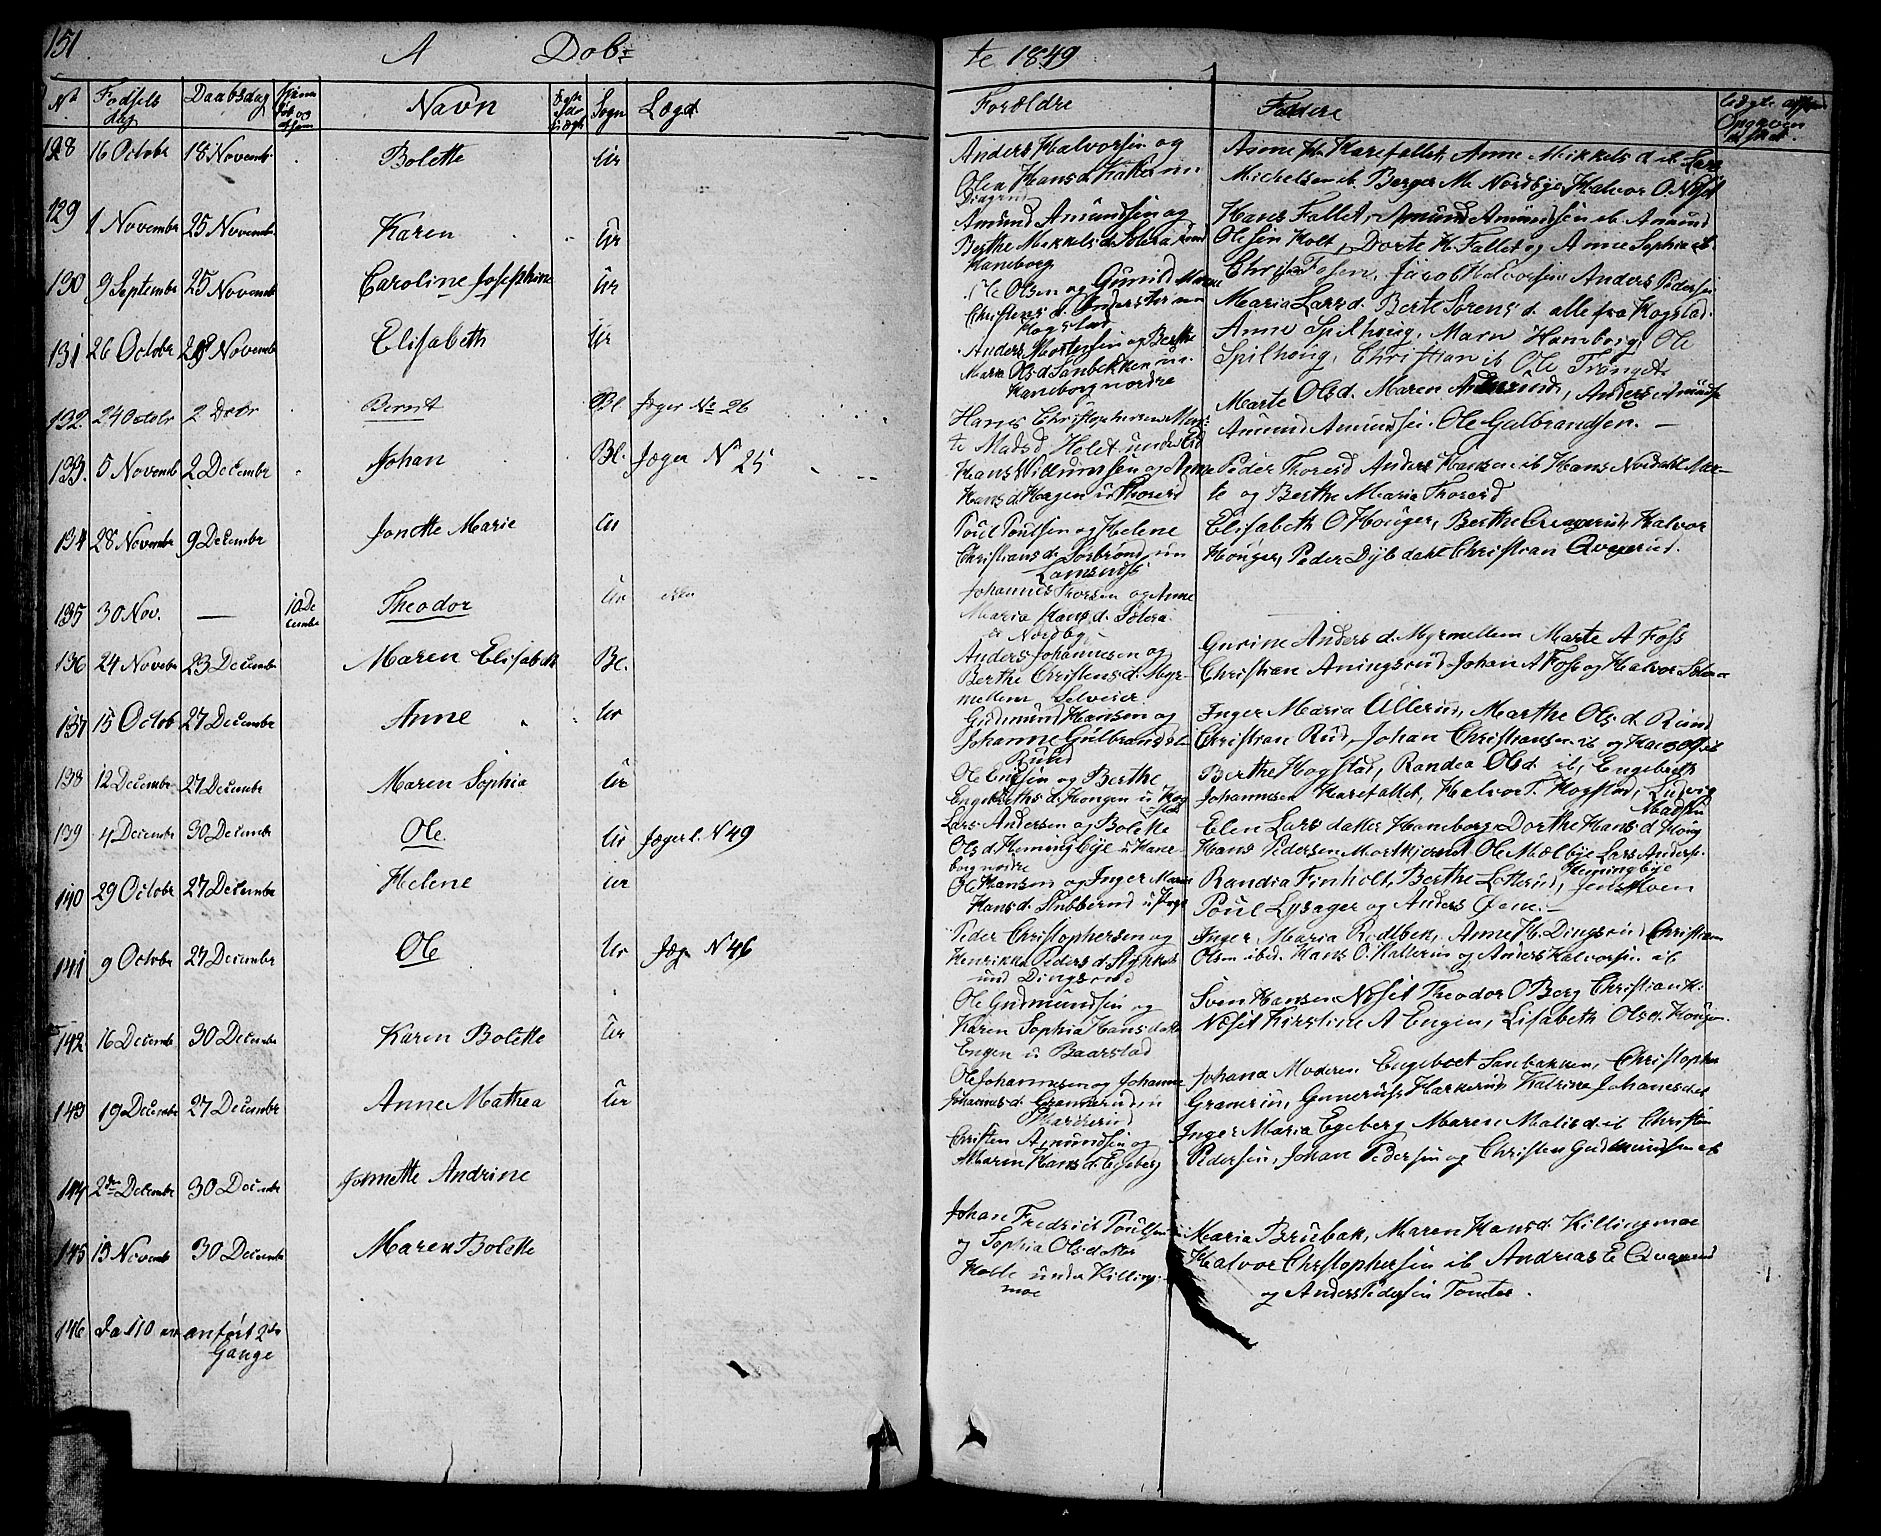 151 A Dob-
te 1849
No Fødsels dag Daabsdag Navn Sogn Lægd
Forældre Faddere
128 16 Octobr 18 Novemb. Bolette Ur
Anders Halvorsen og
Olea Hansd.
Anne Mikkelsd. ib. Lars
Michelsen ib. Berger M. Nordbye, Halvor O Næset
129 1 Novembr 25 Novemb. Karen Ur
Amund Amundsen og
Berthe Mikkelsd. Solera und
Haneborg
Hans Fallet, Amund Amundsen ib. Amund
Olesen Holt, Dorte H. Fallet og Anne Sophia ib.
130 9 Septembr 25 Novemb Caroline Josephine Ur
Ole Olsen og Gunild Marie
Christensd.
Kogstad
Fosen, Jacob Halvorsen Anders Pedersen
Maria Larsd. Berte Sørensd. alle fra Kogstad.
131 26 Octobr Novemb Elisabeth Ur
Anders Mortensen og Berthe
Maria Olsd Sanbekken un.
Haneborg nordre
Anne Spilhoug, Maren Haneborg Ole
Spilhoug, Christian ib Ole Tranget.
132. 24 Octobr 2 Decbr Bernt Bl Jæger No 26
Hans Christophersen Mar-
te Madsd. Holet under
Marte Olsd. Maren Anders Amunds
Amund Amundsen. Ole Gulbrandsen. —
133. 5 Novemb 2 Decembr Johan Bl. Jæger No 25
Hans og Anne
Hansd. Hagen u Thorerud
Peder Thorerud Anders Hansen ib Hans Nordahl Mar-
te og Berthe Maria Thorerud
134 28 Novembr 9 Decembr Jonette Marie Ur
Poul Poulsen og Helene
Christiansd. un
Elisabeth O Houger, Berthe Qvegerud, Halvor
Houger, Peder Dybdahl Christian Qvegerud.
135 30 Nov. — 10 De cembr Theodor Ur
Johannes Thorsen og Anne
Maria Hansd. Solera
u Nordby
136 24 Novebr 23 Decembr Maren Elisabeth Bl.
Anders Johannesen og
Berthe Christensd. Myr-
mellem Selveier
Gurine Andersd. Myrmellem Marte A Foss
Christian Aningsrud Johan A Foss og Halvor
137 15 Octob 27 Decembr Anne Ur
Gudmund Hansen og
Johanne Gulbrandsd.
Ruud
Inger Maria Ullerud, Marthe Olsd. Rund
Christian Rud, Johan Christiansen ib og Hans O ib
138 12 Decembr 27 Decembr Maren Sophia Ur
Ole Ensen og Berthe
Engebrethsd. Hougen u Kog
stad
Berthe Hogstad, Randea Olsd. ib, Engebreth
Johannesen Harefallet, Halvor T. Kogstad, Ludvig
Madsen
139 4 Decembr 30 Decembr Ole Ur Jægerl. No 49
Lars Andersen og Bolette
Olsd. Hemingbye u Hane-
borg nordre
Elen Larsdatter Haneborg, Dorthe Hansd. Houg
Hans Pedersen Morthjernet Ole Mælbye Lars Anderse.
Hemingbye
140 29 Octobr 27 Decembr Helene Ur
Ole Hansen og Inger Marie
Hansd. Stubberud u
Randia Finholt, Berthe Lotterud, Jens Moen
Poul Lysager og Anders Øem. —
141 9 Octobr 27 Decembr Ole Ur Jæg No 46
Peder Christophersen og
Henrikka Pedersd. Stykket
und Dingsrud
Inger Maria Rødbek, Anne H. Dingsrud, Christian
Olsen ibid. Hans O. Kallerud og Anders Halvorsen ib
142 16 Decemb 30 Decembr Karen Bolette Ur
Ole Gudmundsen og
Karen Sophia Hansdatte
Engen u Baarstad
Sven Hansen Næset Theodor O Berg Christian H.
Næset Kirstine A Engen, Lisabeth Olsd. Hougen.
143 19 Decembr 27 Decembr Anne Mathea Ur
Ole Johannesen og Johanne
Johannesd. Granerud un
Harkerud
Johana Moderen Engebret Sanbakken, Christopher
Granerud, Gunerius Harkerud, Katrine Johanesdat
144 2den Decembr 30 Decembr Jonnette Andrine
Christen Amundsen og
Maren Hansd. Egeberg
Inger Maria Egeberg Maren Malisd. ib Christen
Pedersen, Johan Pedersen og Christen Gudmundsen ib
145 13 Novemb 30 Decembr Maren Bolette
Johan Fredrick Poulsen
og Sophia Olsdatter
Holte under Killing-
moe
Maria Brubak, Maren Hansd. Killingmoe
Halvor Christophersen ib Andreas E Qvegerud
og Anders Pedersen Tomter.
146 Da 110 er anført 2de
Gange